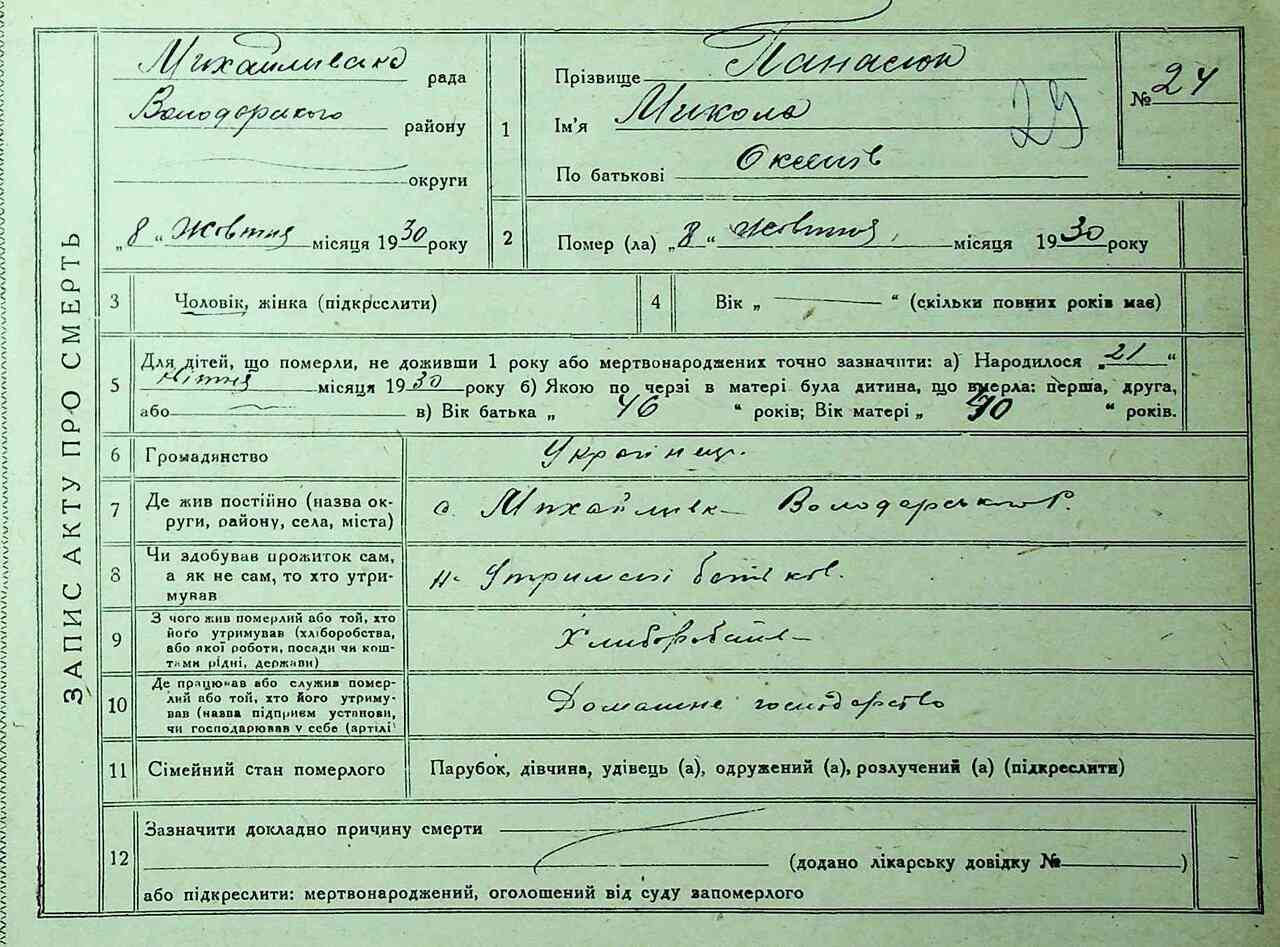 ЗАПИС АКТУ ПРО СМЕРТЬ
Михайливана рада
Володарского району
округи
„8“ жовтня місяця 1930 року
1
Прізвище Панасюк
Ім'я Микола
По батькові
№ 24
29
2
Помер (ла) „8“ жовтня місяця 1930 року
3
Чоловік, жінка (підкреслити)
4
Вік „ — “ (скільки повних років має)
5
Для дітей, що померли, не доживши 1 року або мертвонароджених точно зазначити: а) Народилося „21“
місяця 1930 року б) Якою по черзі в матері була дитина, що вмерла: перша, друга,
або — в) Вік батька „ 46 “ років; Вік матері „ 40 “ років.
6
Громадянство
Українец.
7
Де жив постійно (назва ок-
руги, району, села, міста)
с. Михайливк Володарського р.
8
Чи здобував прожиток сам,
а як не сам, то хто утри-
мував
на Утримані батьков.
9
З чого жив померлий або той, хто
його утримував (хліборобства,
або якої роботи, посади чи кош-
тами рідні, держави)
10
Де працював або служив помер-
лий або той, хто його утриму-
вав (назва підприєм установи,
чи господарював у себе (артілі)
Домашне господарство
11
Сімейний стан померлого
Парубок, дівчина, удівець (а), одружений (а), розлучений (а) (підкреслити)
12
Зазначити докладно причину смерти
(додано лікарську довідку № )
або підкреслити: мертвонароджений, оголошений від суду запомерлого